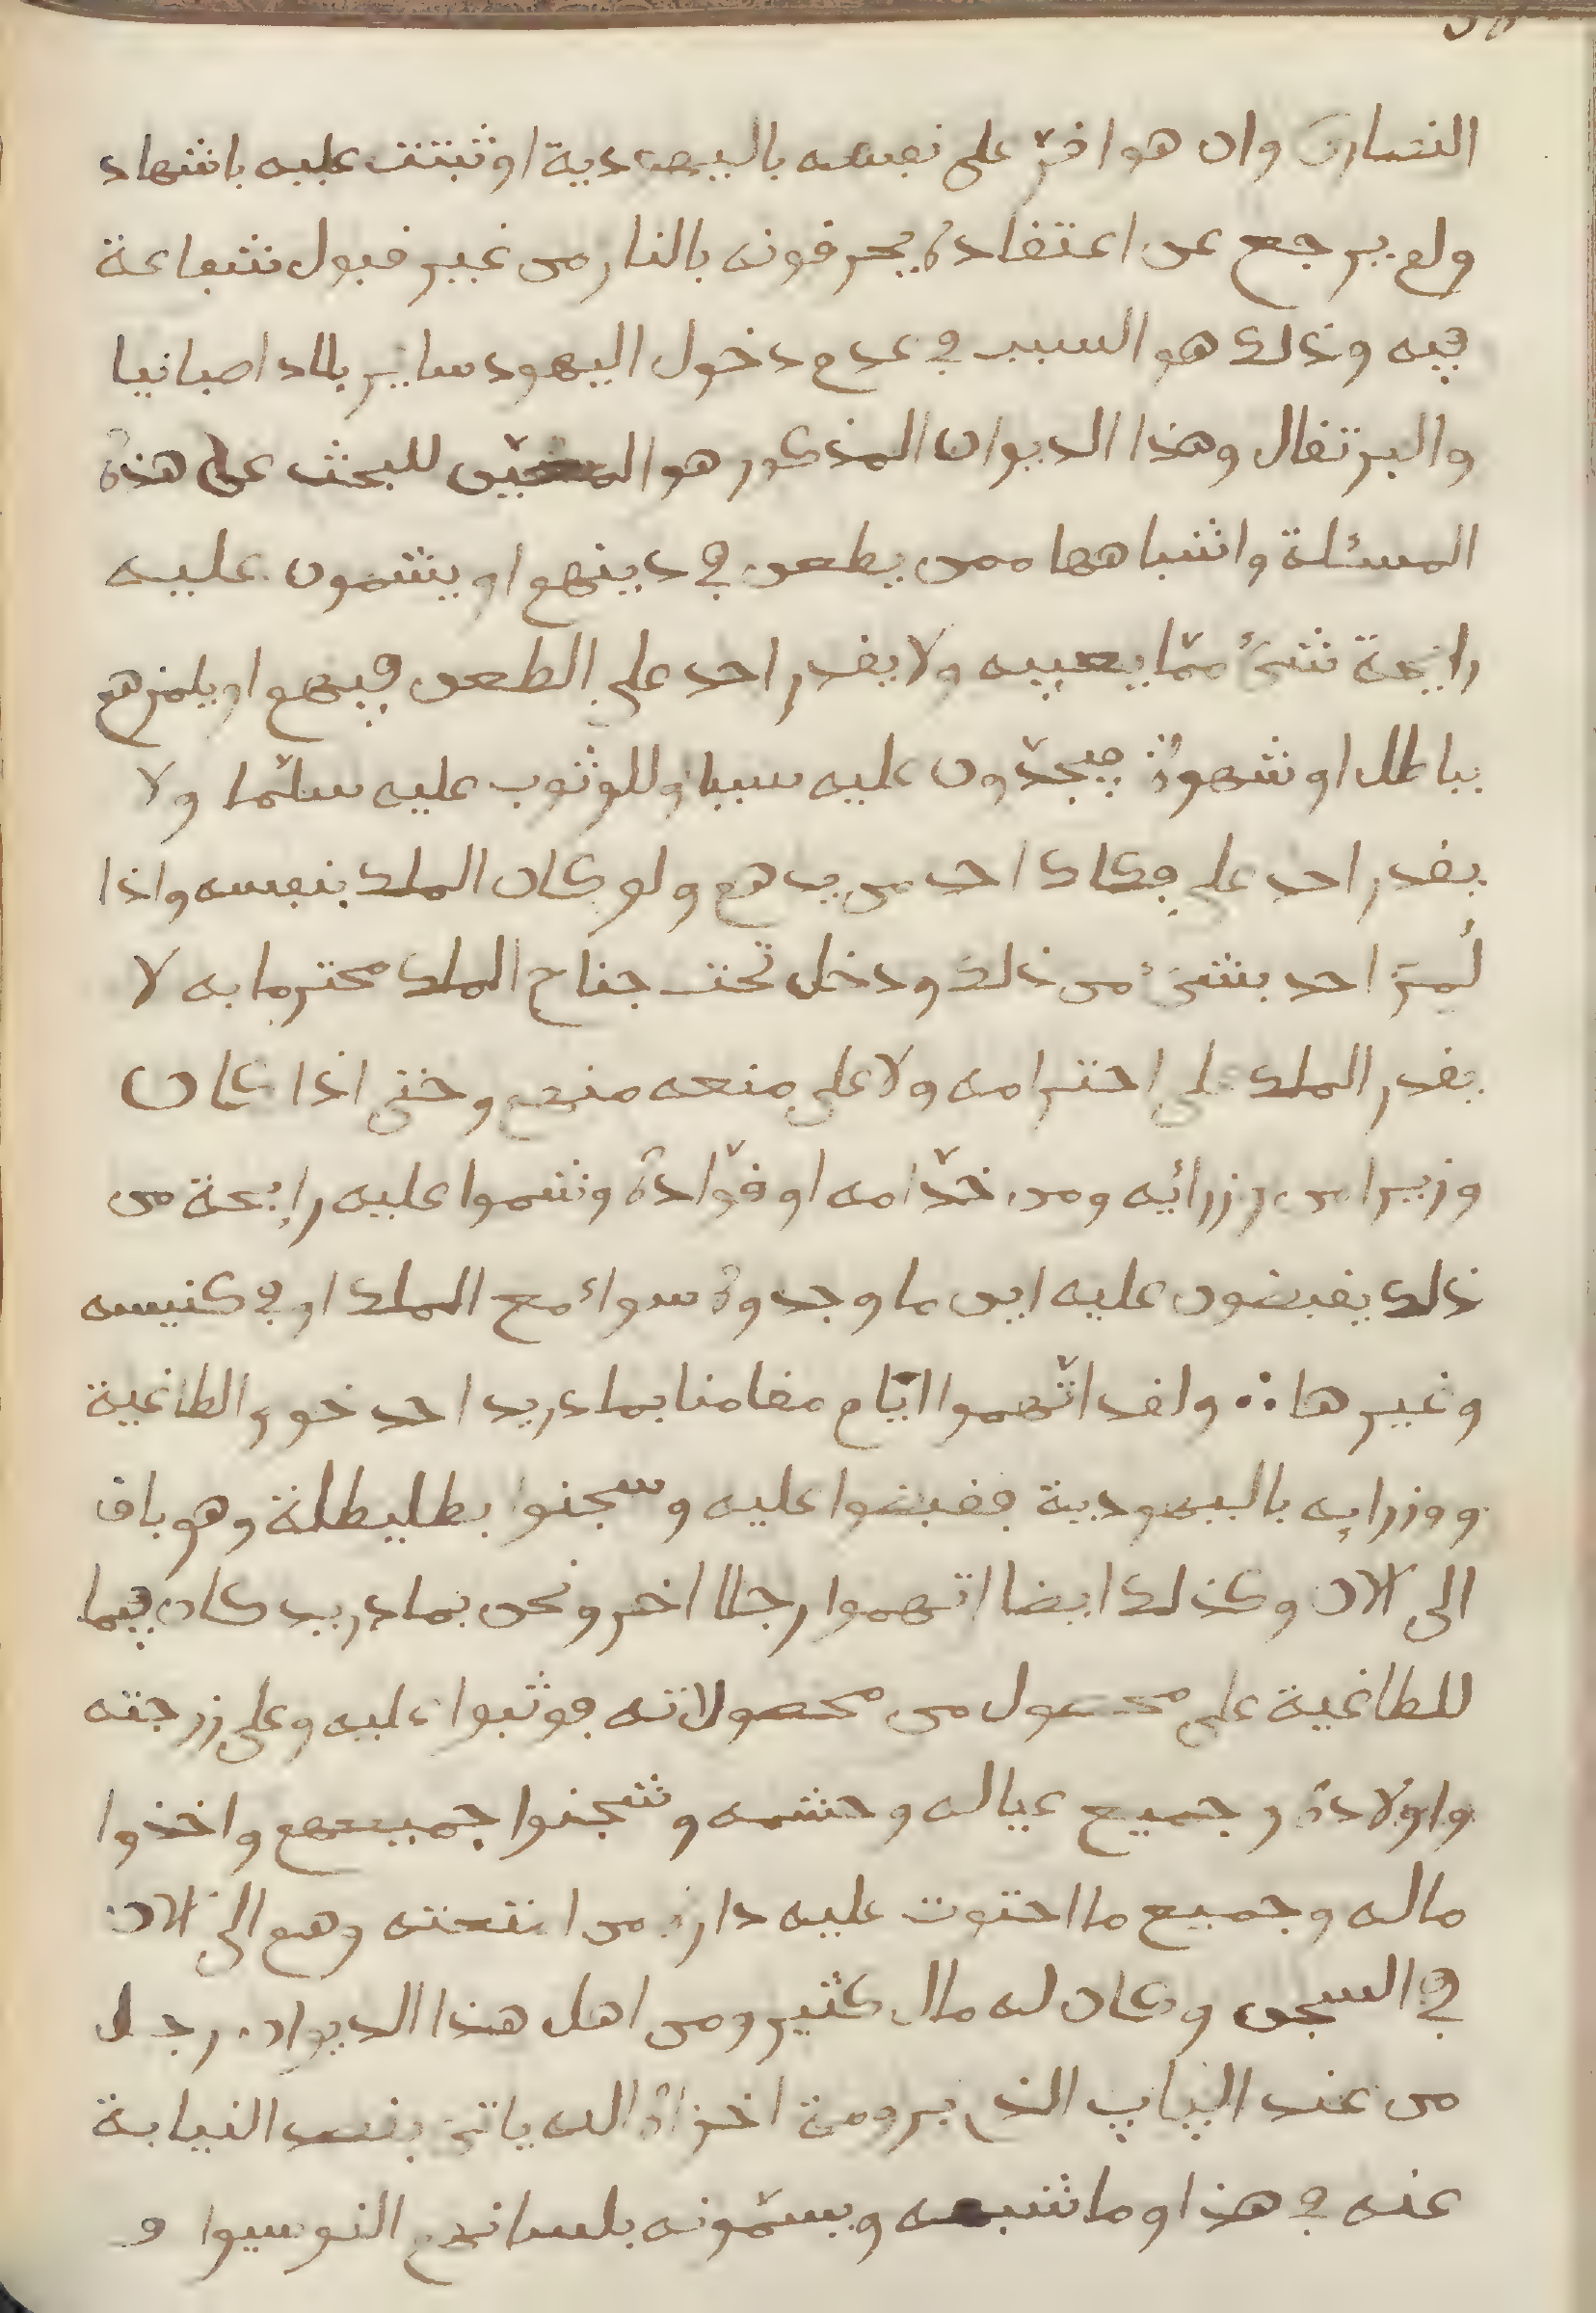 النصارى وان هو اقرّ على نفسه باليهودية او ثبتت عليه باشهاد
ولم يرجع عن اعتقاده يحرقونه بالنار من غير قبول شفاعة
فيه وذلك هو السبب في عدم دخول اليهود ساير بلاد اصبانيا
والبرتقال وهذا الديوان المذكور هو المعيّن للبحث على هذه
المسئلة واشباهها ممن يطعن في دينهم او يشمون عليه
رايحة شئ ممّا يعيبه ولا يقدر احد على الطعن فيهم او يلمزهم
بباطل او شهوة فيجدّون عليه سببا وللوثوب عليه سلّما ولا
يقدر احد على فكاك احد من يدهم ولو كان الملك بنفسه واذا
لُمز احد بشئ من ذلك ودخل تحت جناح الملك محترما به لا
يقدر الملك على احترامه ولا على منعه منهم وحتى اذا كان
وزيرا من وزرائه ومن خدّامه او قوّاده وشموا عليه رايحة من
ذلك يقبضون عليه اين ما وجدوه سواء مع الملك او في كنيسه
وغيرها ؞ ولقد اتّهموا ايّام مقامنا بمادريد احد خور الطاغية
ووزرايه باليهودية فقبضوا عليه وسجنوا بطليطلة وهو باق
الى الان وكذلك ايضا اتهموا رجلا اخر ونحن بمادريد كان فيما
للطاغية على محصول من محصولاته فوثبوا عليه وعلى زوجته
واولاده وجميع عياله وحشمه وسجنوا جميعهم واخذوا
ماله وجميع ما احتوت عليه داره من امتعته وهم الى الان
في السجن وكان له مال كثير ومن اهل هذا الديوان رجل
من عند الپاپ الذي برومة اخزاه الله ياتي بقصد النيابة
عنه في هذا وما شبهه ويسمّونه بلسانهم النوسيوا و